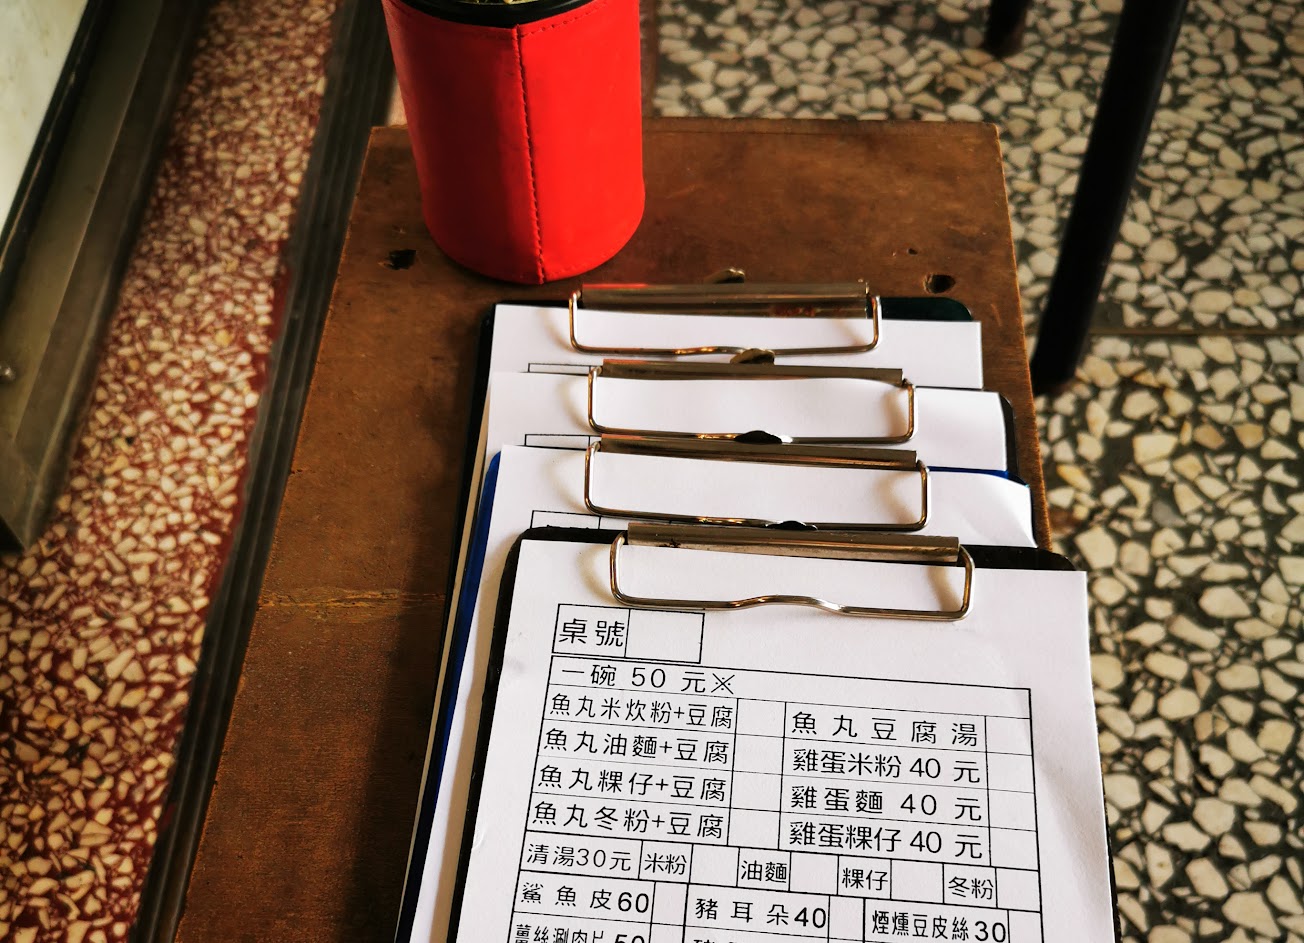 桌號
一碗 50 元※
魚丸米炊粉+豆腐 魚丸豆腐湯
魚丸油麵+豆腐 雞蛋米粉 40 元
魚丸粿仔+豆腐 雞蛋麵 40 元
魚丸冬粉+豆腐 雞蛋粿仔 40 元
清湯30元 米粉 油麵 粿仔 冬粉
鯊魚皮60 豬耳朵40 煙燻豆皮絲30
薑絲涮肉片50